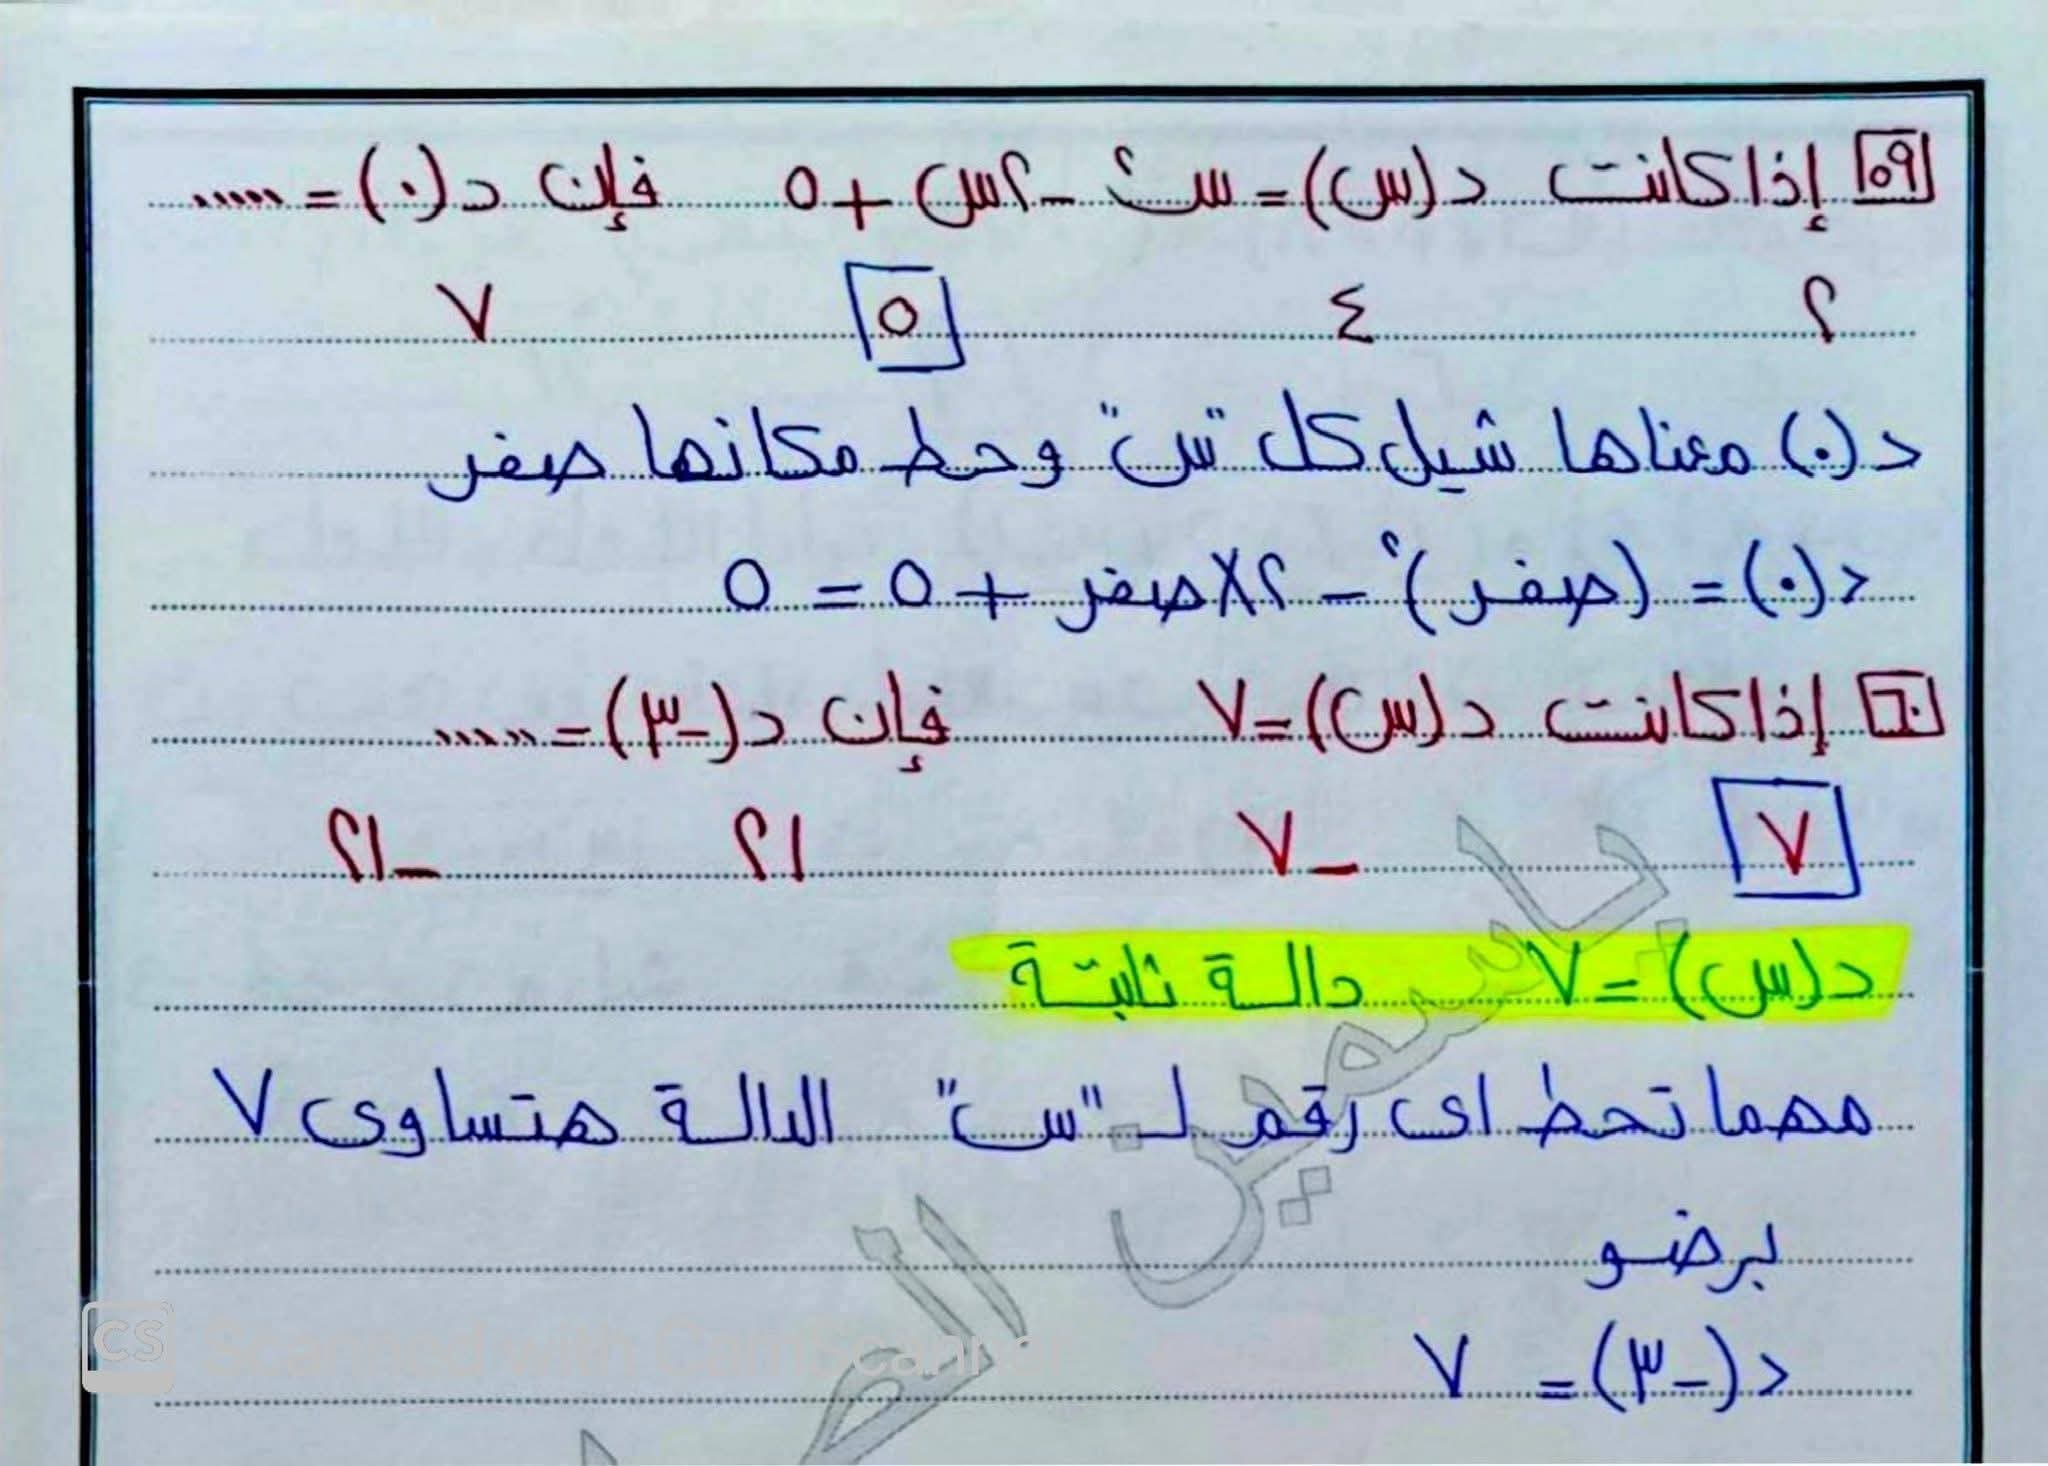 ٥٩ إذا كانت د(س) = س٢ - ٢س + ٥ فإن د(٠) = .....
٢ ٤ ٥ ٧
د(٠) معناها شيل كل "س" وحط مكانها صفر
د(٠) = (صفر)٢ - ٢×صفر + ٥ = ٥
٦٠ إذا كانت د(س) = ٧ فإن د(-٣) = .....
٧ -٧ ٢١ -٢١
د(س) = ٧ دالة ثابتة
مهما تحط اى رقم لـ "س" الدالة هتساوى ٧
برضو
د(-٣) = ٧
ياسمين
CS Scanned with CamScanner